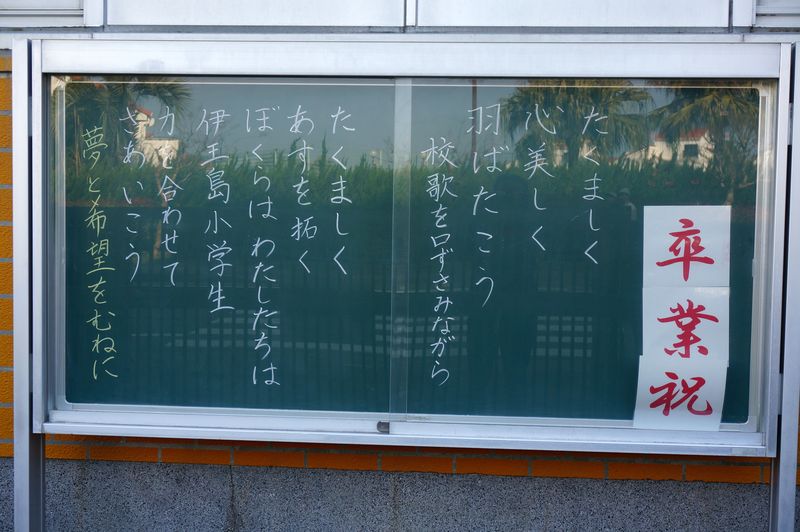 祝卒業
たくましく
心美しく
羽ばたこう
校歌を口ずさみながら
たくましく
あすを拓く
ぼくらは わたしたちは
伊王島小学生
力を合わせて
さあいこう
夢と希望をむねに